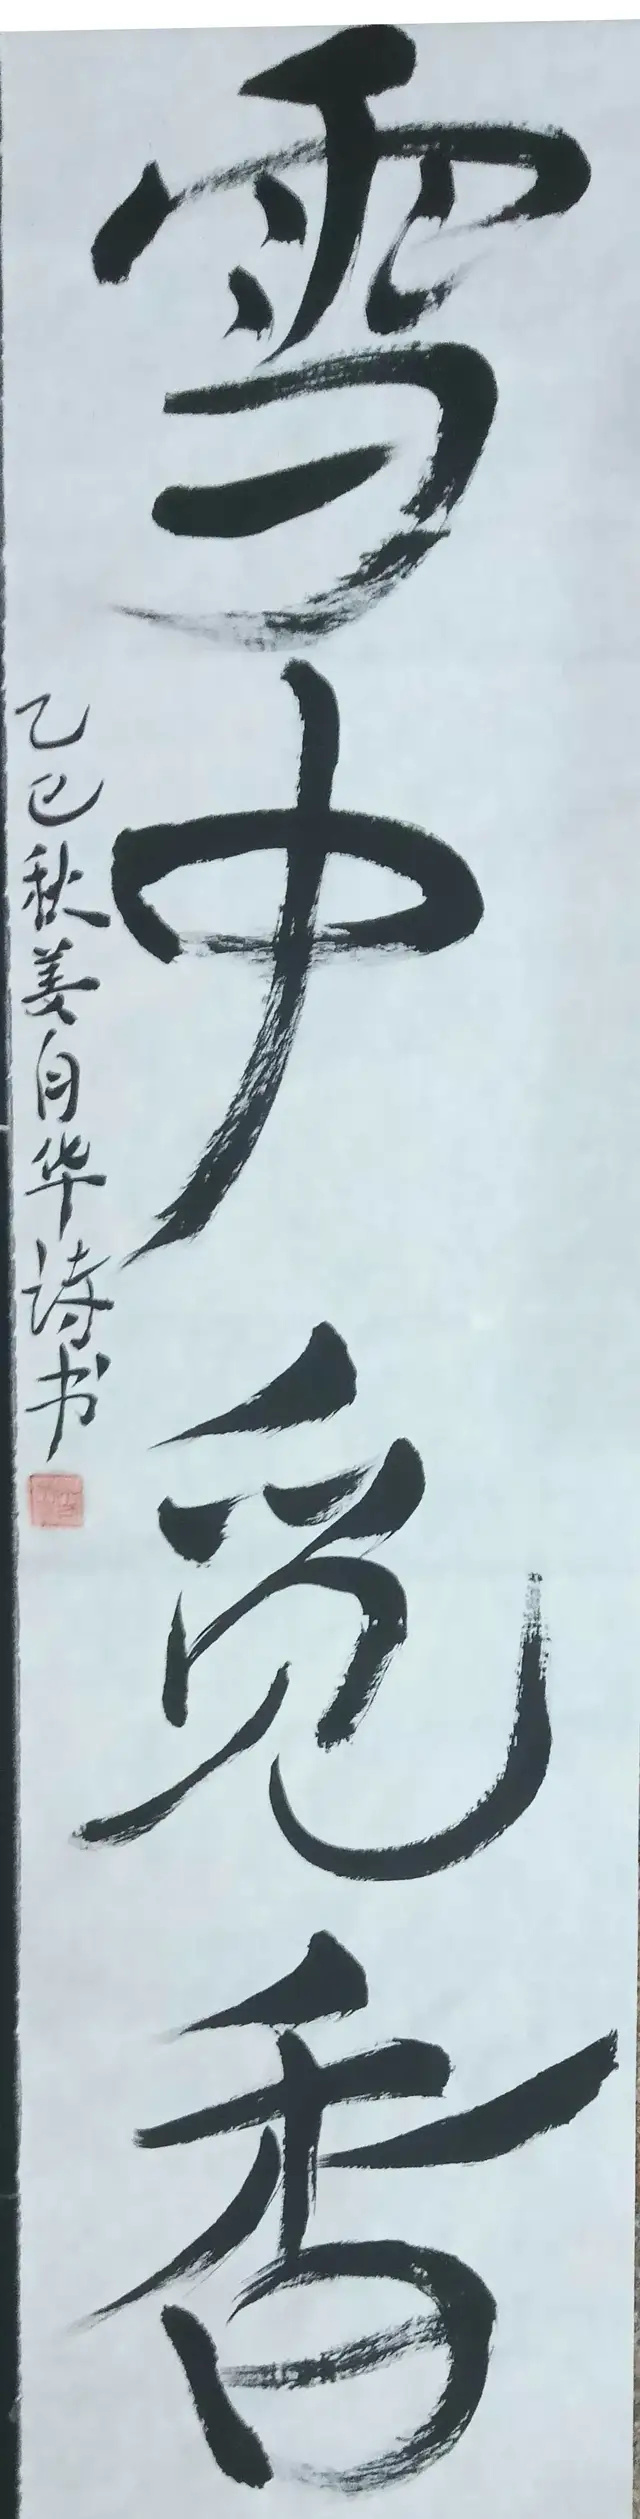 雪中觅香
乙巳秋姜自华诗书